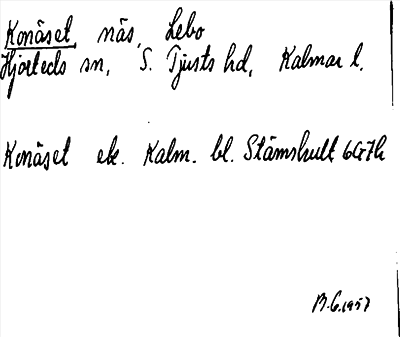 Konäset, näs, Lebo
Hjorteds sn, S. Tjusts hd, Kalmar l.
Konäset ek. Kalm. bl. Stämshult 6G7h
B.G. 1957